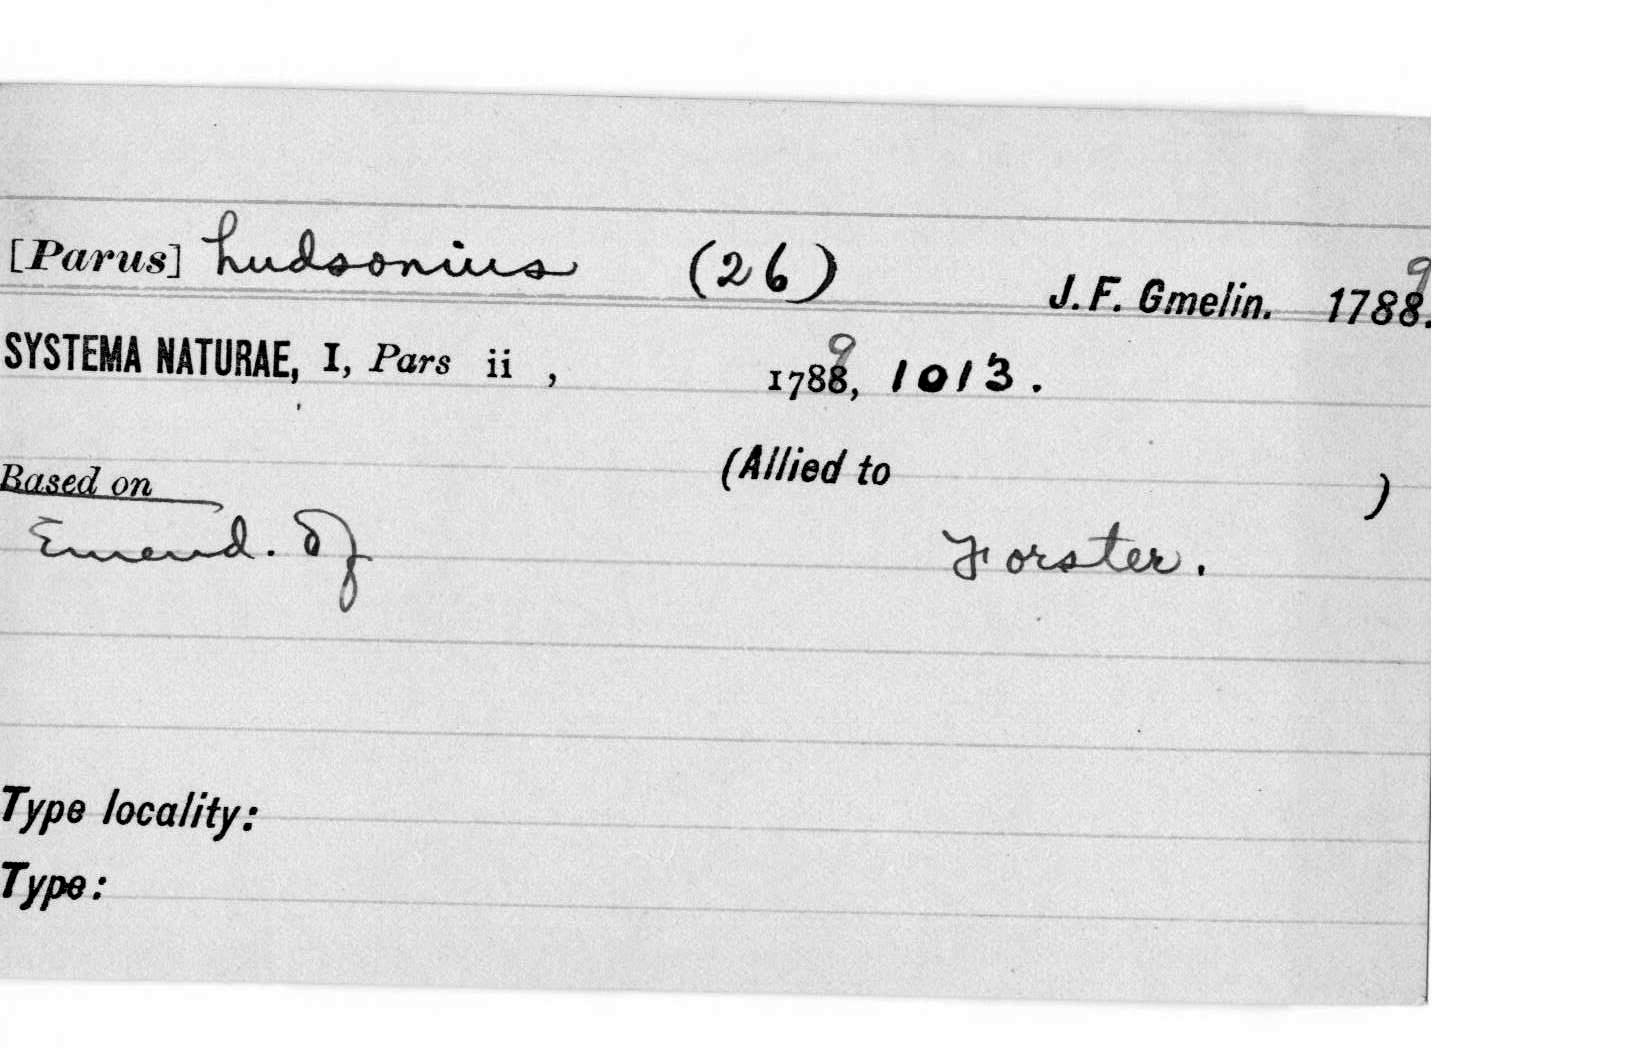 [Parus] hudsonius (26) J. F. Gmelin. 1788. 9
SYSTEMA NATURAE, I, Pars ii , 1788, 9 1013.
Based on (Allied to )
Emend. of Forster.
Type locality:
Type: